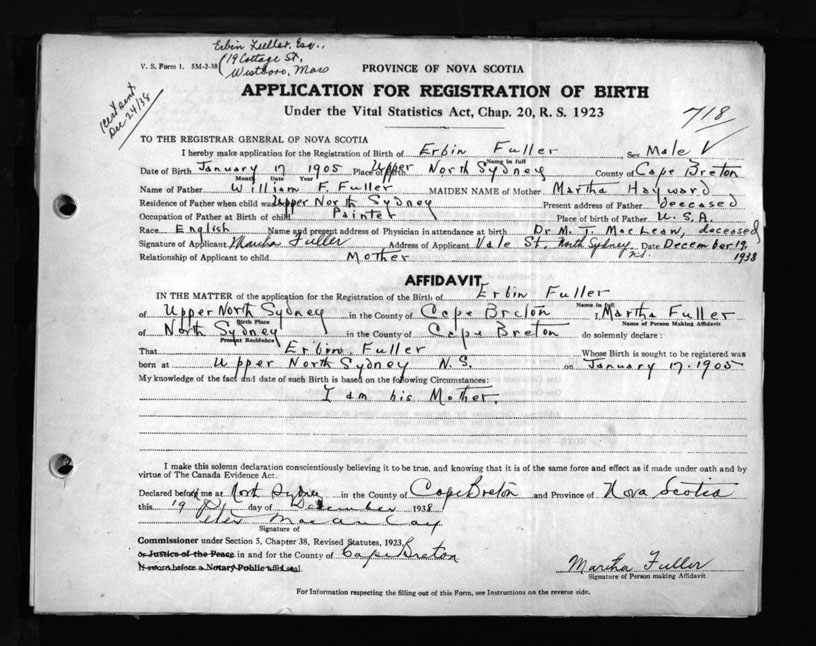 Erbin Fuller, Esq.,
V. S. Form 1. 5M-2-38 (19 Cottage St,
Westboro, Mass
PROVINCE OF NOVA SCOTIA
APPLICATION FOR REGISTRATION OF BIRTH
Under the Vital Statistics Act, Chap. 20, R. S. 1923
718
Dec 24/38
TO THE REGISTRAR GENERAL OF NOVA SCOTIA
I hereby make application for the Registration of Birth of Erbin Fuller Sex Male
Name in full
Date of Birth January 17 1905 Place of Birth Upper North Sydney County of Cape Breton
Month Date Year
Name of Father William F. Fuller MAIDEN NAME of Mother Martha Hayward
Residence of Father when child was Upper North Sydney Present address of Father deceased
Occupation of Father at Birth of child Painter Place of birth of Father U.S.A.
Race English Name and present address of Physician in attendance at birth Dr M. T. MacLean, deceased
Signature of Applicant Martha Fuller Address of Applicant Vale St. North Sydney N.S. Date December 19, 1938
Relationship of Applicant to child Mother
AFFIDAVIT
IN THE MATTER of the application for the Registration of the Birth of Erbin Fuller
Name in full
of Upper North Sydney in the County of Cape Breton I, Martha Fuller
Birth Place Name of Person Making Affidavit
of North Sydney in the County of Cape Breton do solemnly declare :
Present Residence
That Erbin Fuller Whose Birth is sought to be registered was
born at Upper North Sydney N.S. on January 17. 1905
My knowledge of the fact and date of such Birth is based on the following Circumstances:
I am his Mother.
I make this solemn declaration conscientiously believing it to be true, and knowing that it is of the same force and effect as if made under oath and by
virtue of The Canada Evidence Act.
Declared before me at North Sydney in the County of Cape Breton and Province of Nova Scotia
this 19th day of December 1938
Signature of
Commissioner under Section 5, Chapter 38, Revised Statutes, 1923
or Justice of the Peace in and for the County of Cape Breton
If sworn before a Notary Public affix seal.
Martha Fuller
Signature of Person making Affidavit
For Information respecting the filling out of this Form, see Instructions on the reverse side.